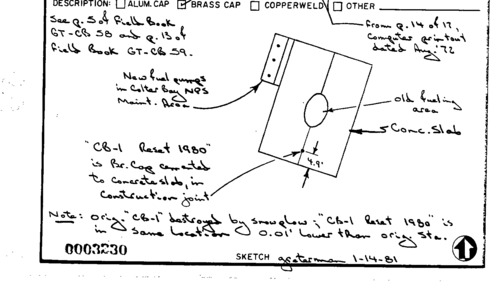 DESCRIPTION: ALUM. CAP BRASS CAP COPPERWELD OTHER
See p. 5 of Field Book
GT-CB 58 and p. 13 of
Field Book GT-CB 59.
From p. 14 of 17,
computer printout
dated Aug. '72
New fuel pumps
in Colter Bay NPS
Maint. Area
old fueling
area
Conc. Slab
"CB-1 Reset 1980"
is Br. Cap cemented
to concrete slab, in
construction joint
4.9'
Note: orig. "CB-1" destroyed by snowplow; "CB-1 Reset 1980" is
in same location 0.01' lower than orig. Sta.
0003230
SKETCH 1-14-81